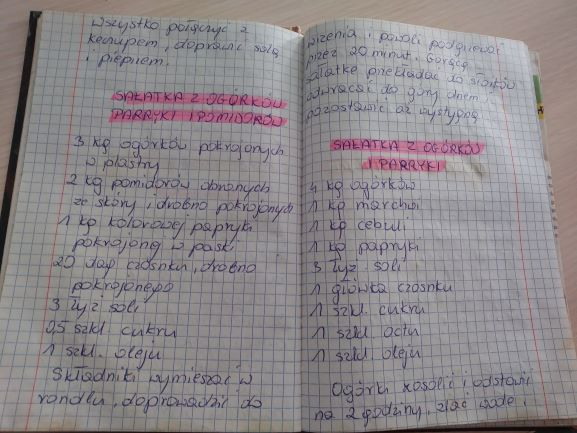 wszystko połączyć z
keczupem, doprawić solą
i pieprzem.
SAŁATKA Z OGÓRKÓW
PAPRYKI I POMIDORÓW
3 kg ogórków pokrojonych
w plastry
2 kg pomidorów obranych
ze skóry, drobno pokrojonych
1 kg kolorowej papryki
pokrojonej w paski
20 dag czosnku, drobno
pokrojonego
3 łyż soli
0,5 szkl. cukru
1 szkl. oleju
Składniki wymieszać w
rondlu, doprowadzić do
wrzenia i powoli podgrzewać
przez 20 minut. Gorącą
sałatkę przekładać do słoików
odwracać do góry dnem
pozostawić aż wystygną
SAŁATKA Z OGÓRKÓW
I PAPRYKI
4 kg ogórków
1 kg marchwi
1 kg cebuli
1 kg papryki
3 łyż. soli
1 główka czosnku
1 szkl. cukru
1 szkl. octu
1 szkl oleju
Ogórki zasolić i odstawić
na 2 godziny, zlać wodę,